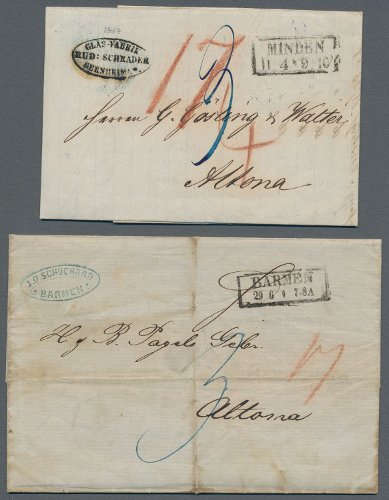 1857
GLAS-FABRIK
RUD: SCHRADER
MINDEN
11 4 * 9-10
17
3
Herren G. Gösling & Walter
Altona
J.D. SCHUCHARD
BARMEN
BARMEN
29 6 * 7-8A
H J B. Pagels Gebr.
3
17
Altona